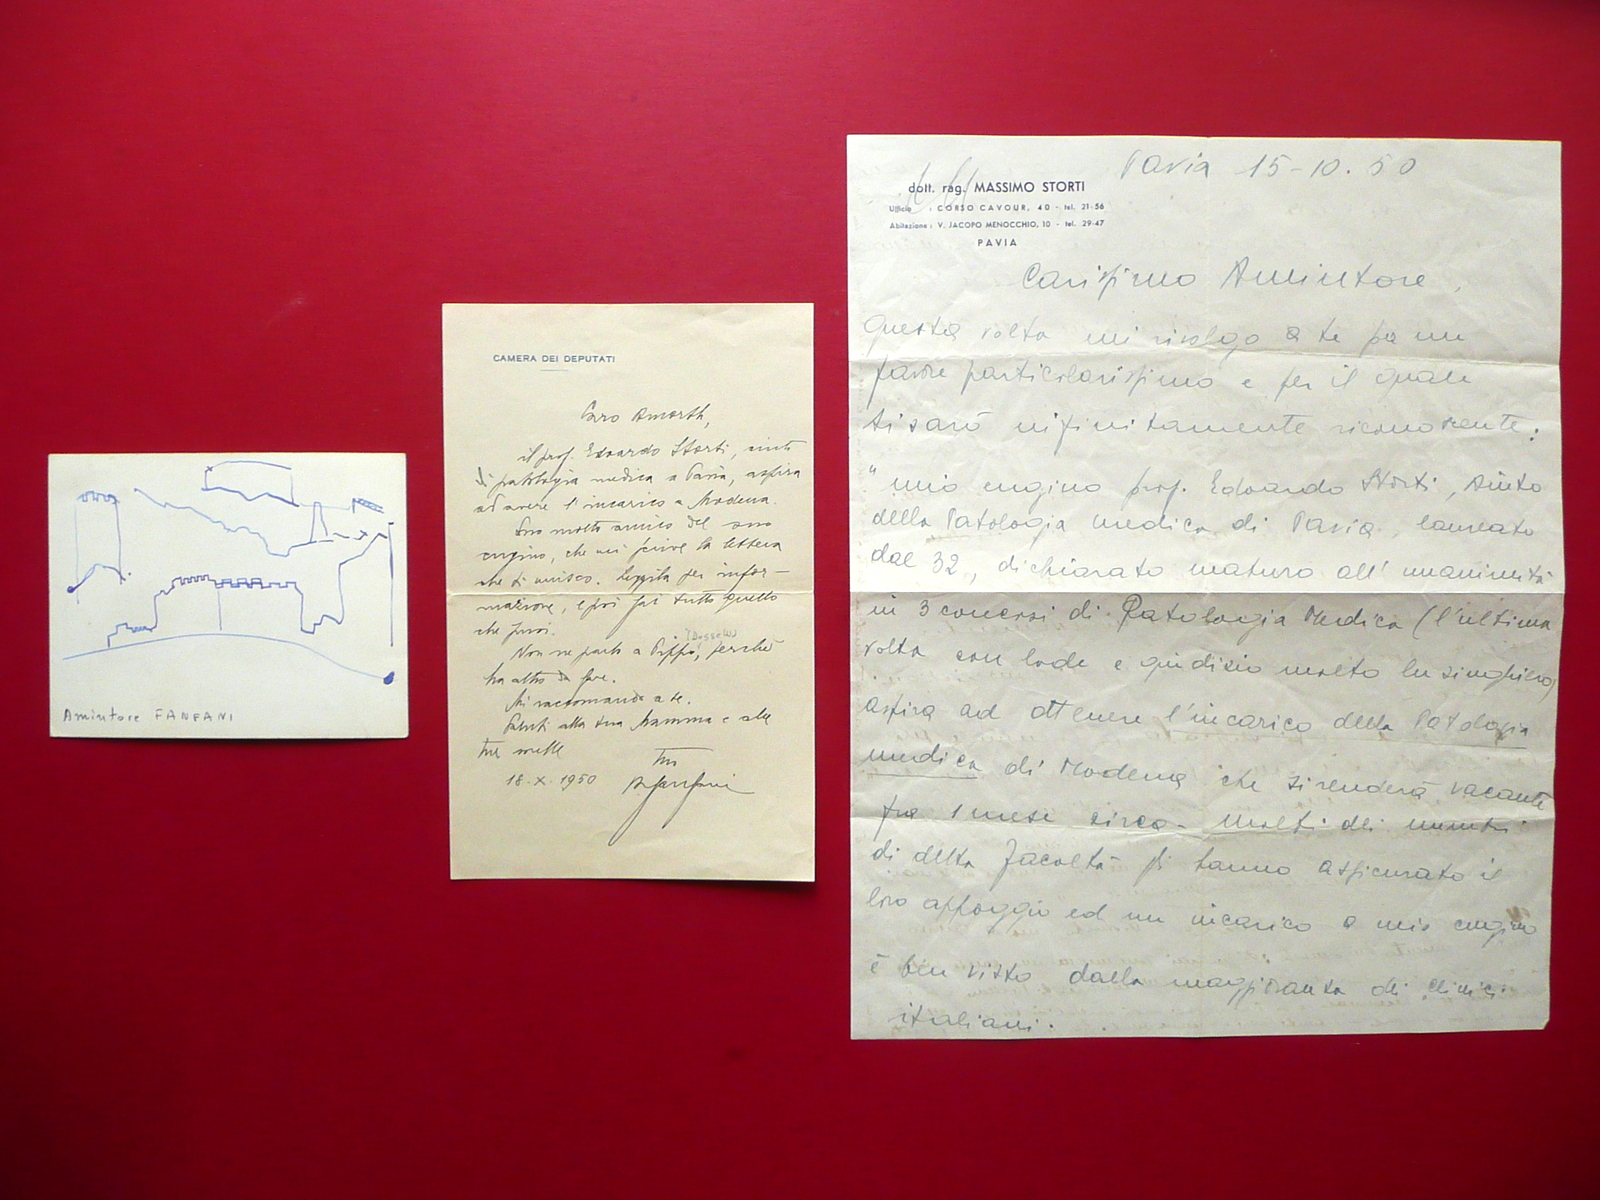 Amintore FANFANI
CAMERA DEI DEPUTATI
Caro Amorth,
il prof. Edoardo Storti, aiuto
di patologia medica a Pavia, aspira
ad avere l'incarico a Modena.
Son molto amico del suo
cugino, che mi scrive la lettera
che ti unisco. Leggila per infor-
mazione, e poi fai tutto quello
che puoi.
(Dossetti)
Non ne parlo a Pippo, perché
ha altro da fare.
Mi raccomando a te.
Saluti alla tua Mamma e alle
tue sorelle
tuo
18.X.1950 A Fanfani
Pavia 15-10.50
dott. rag. MASSIMO STORTI
Ufficio : CORSO CAVOUR, 40 - tel. 21-56
Abitazione : V. JACOPO MENOCCHIO, 10 - tel. 29-47
PAVIA
Carissimo Amintore,
Questa volta mi rivolgo a te per un
favore particolarissimo e per il quale
ti sarò infinitamente riconoscente:
"mio cugino prof. Edoardo Storti, Aiuto
della Patologia medica di Pavia, laureato
dal 32, dichiarato maturo all'unanimità
in 3 concorsi di Patologia Medica (l'ultima
volta con lode e giudizio molto lusinghiero)
aspira ad ottenere l'incarico della Patologia
medica di Modena che si renderà vacante
fra 1 mese circa - molti dei membri
di detta Facoltà gli hanno assicurato il
loro appoggio ed un incarico a mio cugino
è ben visto dalla maggioranza di clinici
italiani.